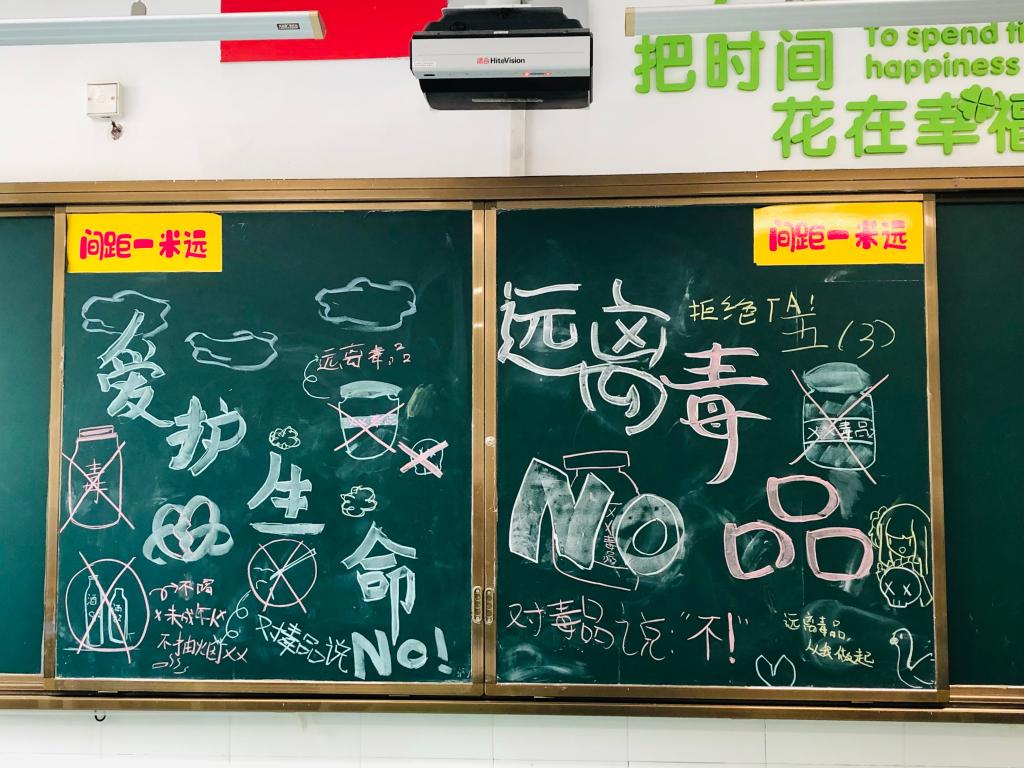 HiteVision
把时间
花在幸福
To spend ti
happiness
间距一米远
间距一米远
爱护生命
远离毒品
毒
酒
不喝
未成年
不抽烟xx
对毒品说
No!
远离
毒品
拒绝TA!
五(3)
毒品
No
毒品
对毒品说:“不!”
远离毒品
从我做起